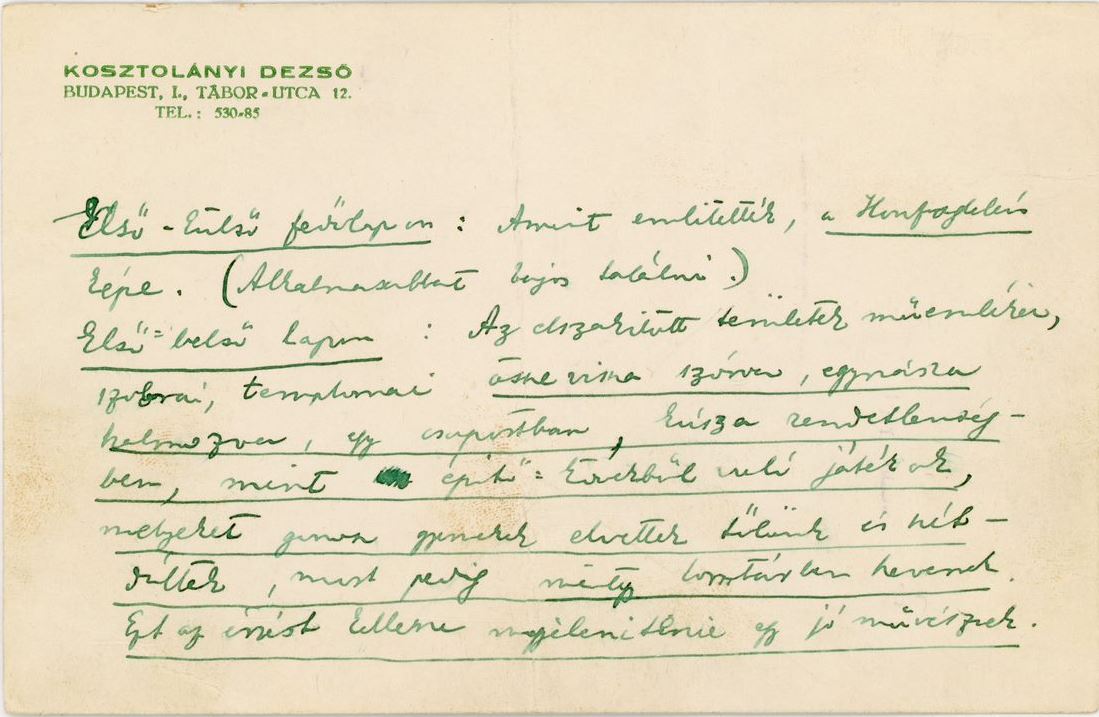 KOSZTOLÁNYI DEZSŐ
BUDAPEST, I., TÁBOR-UTCA 12.
TEL.: 530-85
Első-külső fedőlapon : Amint említették, a Honfoglalás
képe. (Alkalmasabbat bajos találni.)
Első-belső lapon : Az elszakított területek műemlékei,
szobrai, templomai össze vissza szórva, egymásra
halmozva, egy csoportban, kusza rendetlenség-
ben, mint építő-kövekből való játékok,
melyeket gonosz gyerekek elvettek tőlünk és szét-
dúltak, most pedig mély lomtárban hevernek.
Ezt az érzést kellene megjelenítenie egy jó művésznek.